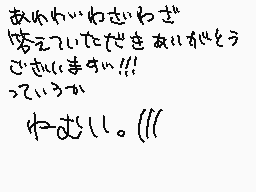 あわわわいわざいわざ
答えていただきありがとう
ございますm!!!
っていうか
ねーむいし。(((